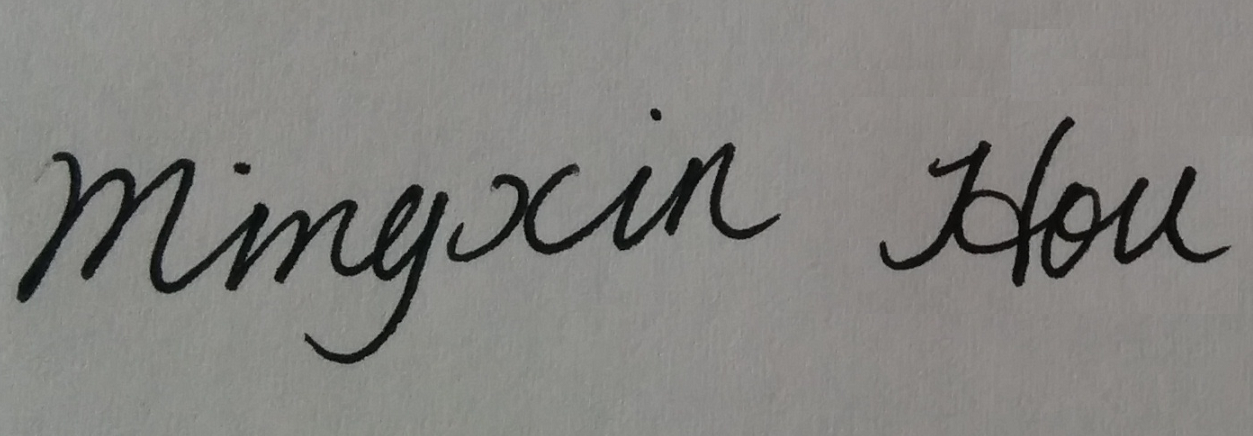 Mingxin Hou